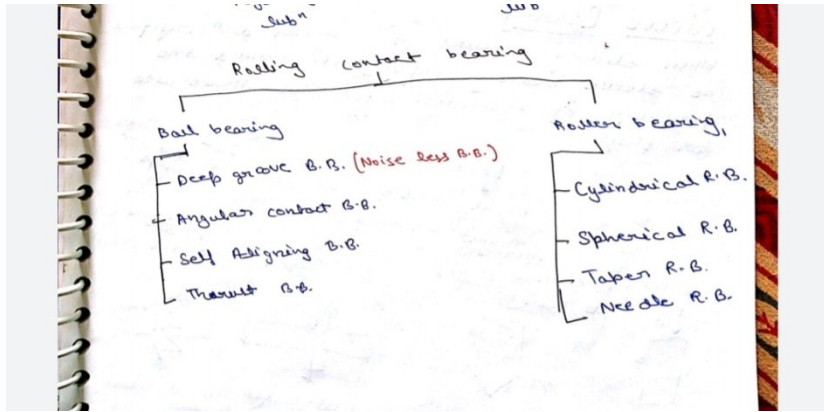 lubⁿ
lub
Rolling contact bearing
Ball bearing
Roller bearing,
Deep groove B.B. (Noise less B.B.)
Angular contact B.B.
Self Aligning B.B.
Thorust B.B.
Cylindrical R.B.
Spherical R.B.
Taper R.B.
Needle R.B.